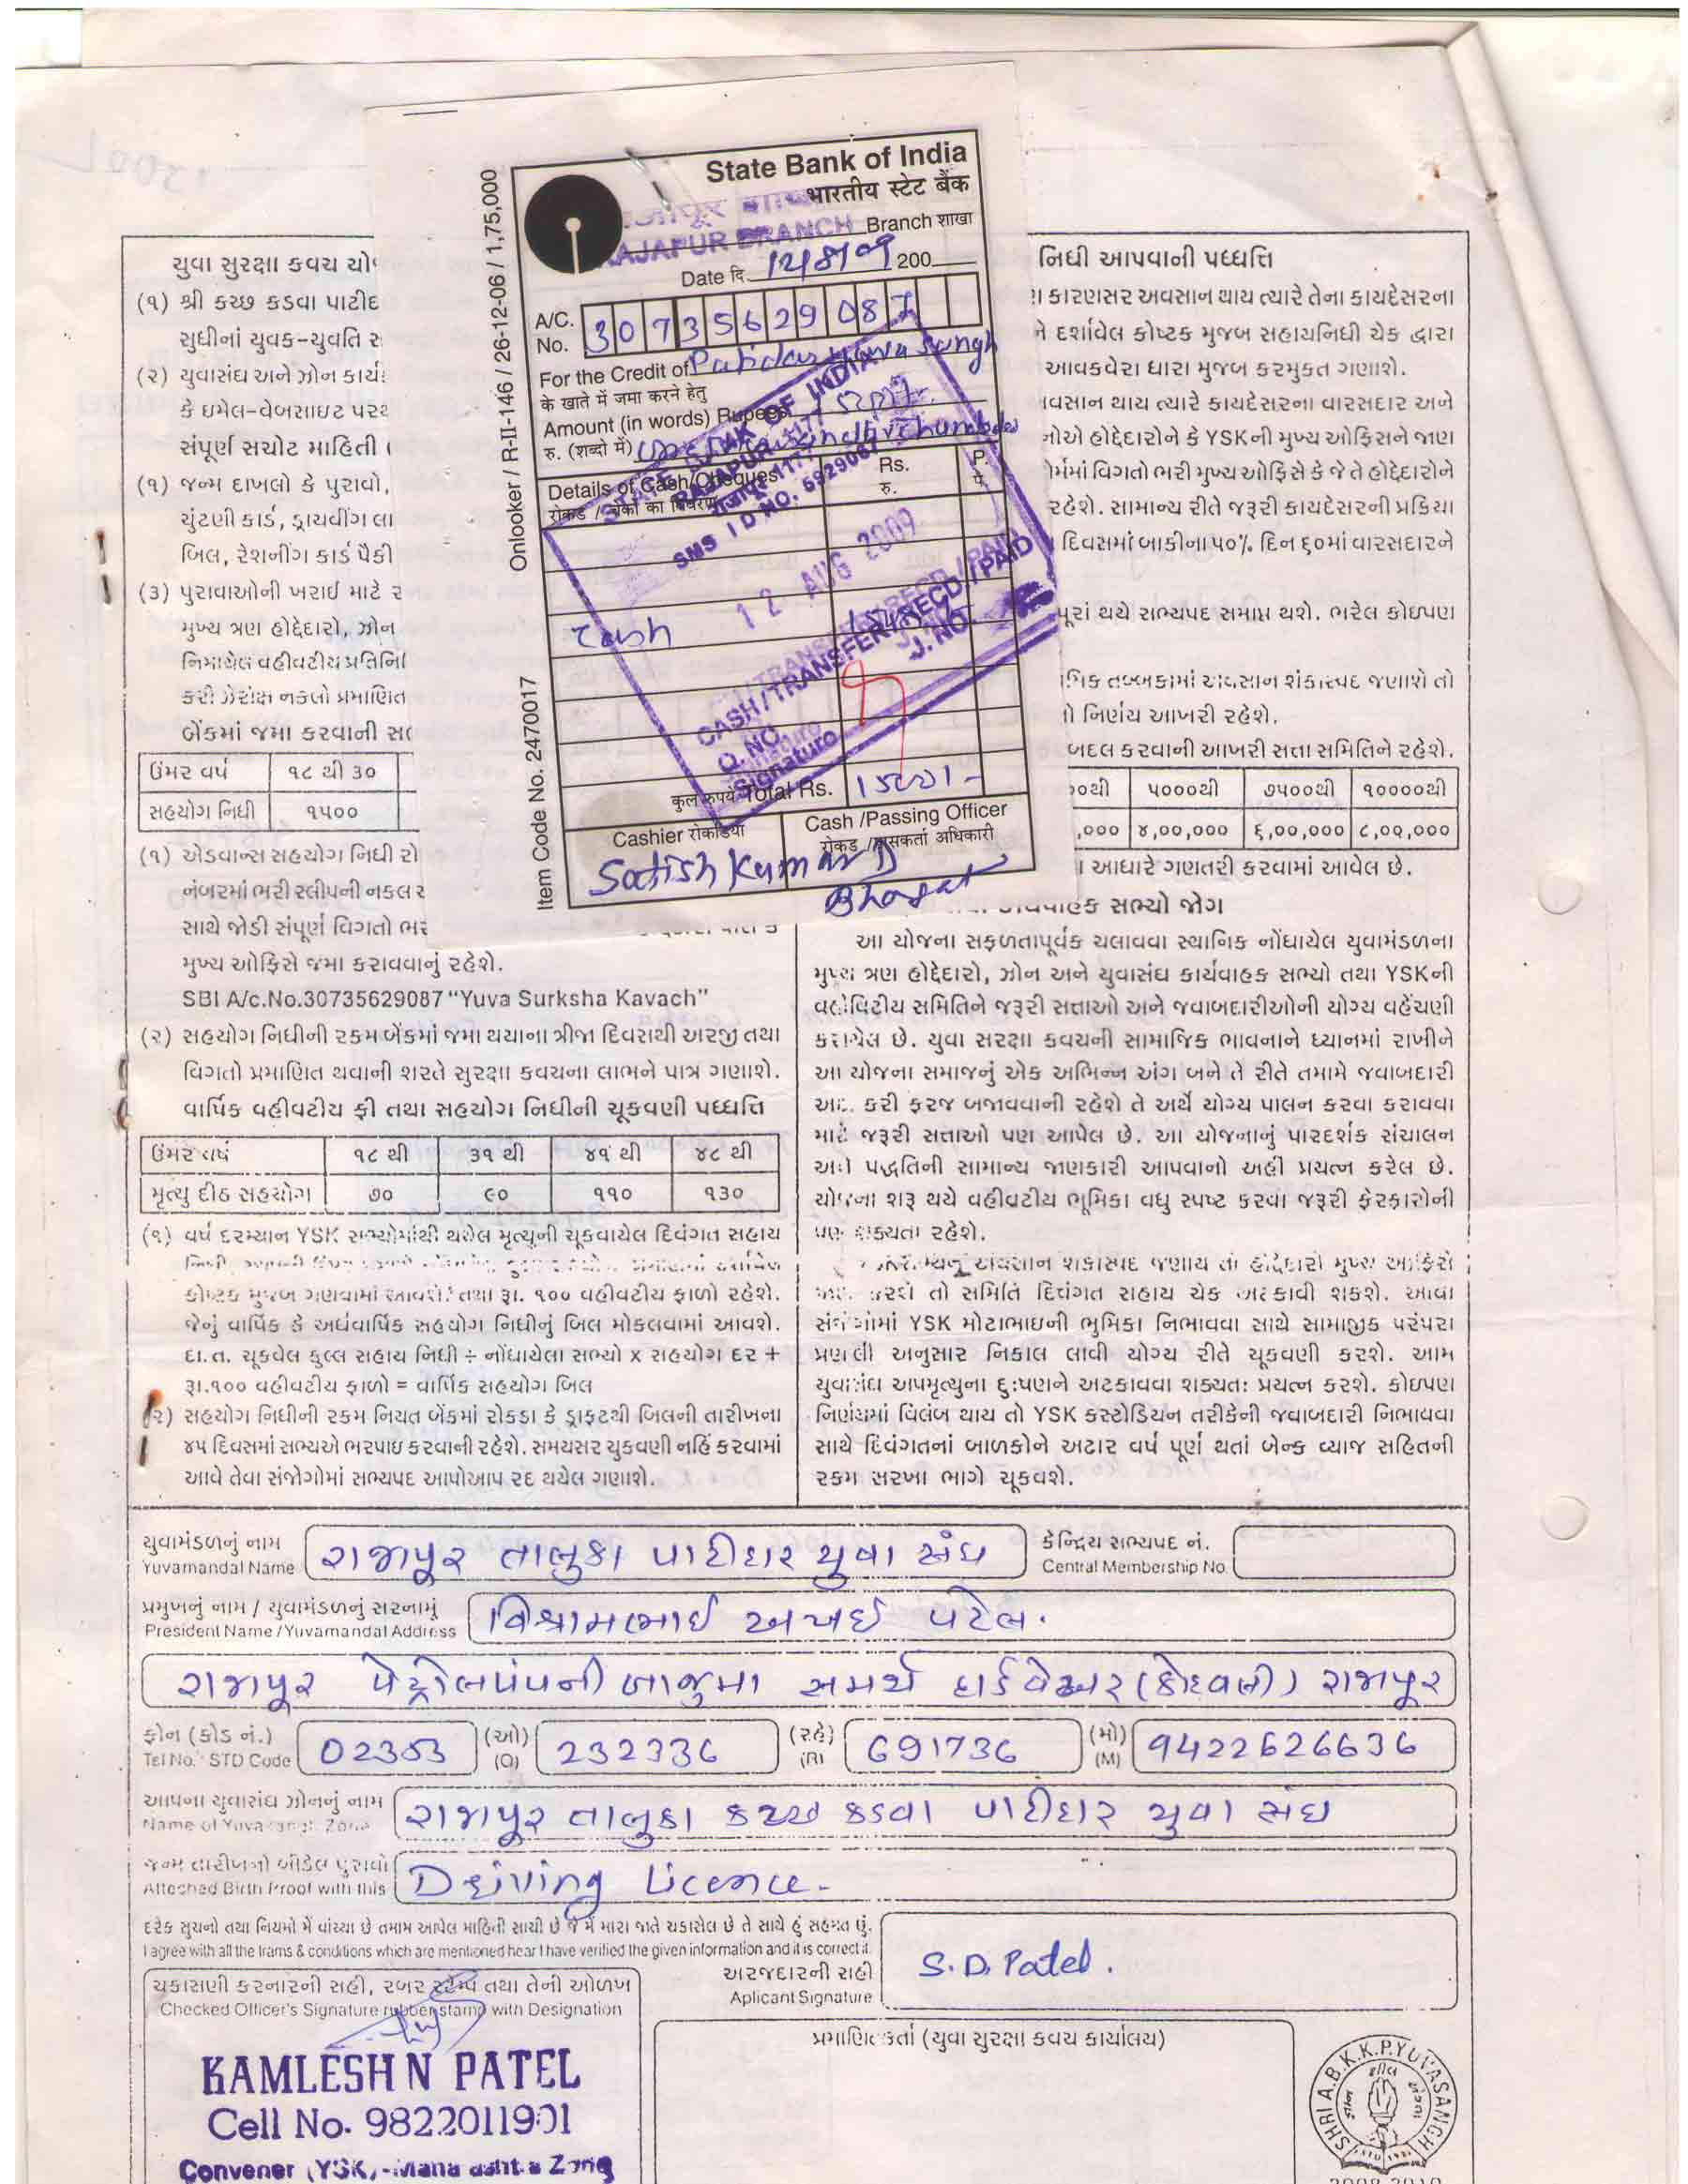 State Bank of India
भारतीय स्टेट बैंक
RAJAPUR BRANCH Branch शाखा
Date दि. 12/8/09 200
A/C. No. 30735629087
For the Credit of Patidar Yuva Sangh
के खाते में जमा करने हेतु
Amount (in words) Rupees
रु. (शब्दो में)
Details of Cash/Cheques
Rs. रु.
P. पै.
12 AUG 2009
Cash
CASH/TRANSFER/RECD/PAID
J. NO.
Signature
कुल रुपये Total Rs. 1500/-
Cashier रोकड़िया
Cash /Passing Officer
Satish Kumar D
Bhagat
Onlooker / R-II-146 / 26-12-06 / 1,75,000
Item Code No. 2470017
યુવા સુરક્ષા કવચ
(૧) શ્રી કચ્છ કડવા પાટીદ
સુધીનાં યુવક-યુવતિ
(૨) યુવાસંઘ અને ઝોન
કે ઇમેલ-વેબસાઇટ
સંપૂર્ણ સચોટ માહિતી
(૧) જન્મ દાખલો કે પુરાવો,
ચુંટણી કાર્ડ, ડ્રાયવીંગ લા
બિલ, રેશનીંગ કાર્ડ પૈકી
(૩) પુરાવાઓની ખરાઇ માટે
મુખ્ય ત્રણ હોદ્દેદારો, ઝોન
નિમાયેલ વહીવટીય પ્રતિનિ
કરી ઝેરોક્ષ નકલો પ્રમાણિત
બેંકમાં જમા કરવાની
ઉંમર વર્ષ ૧૮ થી ૩૦
સહયોગ નિધી ૧૫૦૦
(૧) એડવાન્સ સહયોગ નિધી
નંબરમાં ભરી સ્લીપની નકલ
સાથે જોડી સંપૂર્ણ વિગતો
મુખ્ય ઓફિસે જમા કરાવવાનું રહેશે.
SBI A/c.No.30735629087 “Yuva Surksha Kavach”
(૨) સહયોગ નિધીની રકમ બેંકમાં જમા થયાના ત્રીજા દિવસથી અરજી તથા
વિગતો પ્રમાણિત થવાની શરતે સુરક્ષા કવચના લાભને પાત્ર ગણાશે.
વાર્ષિક વહીવટીય ફી તથા સહયોગ નિધીની ચૂકવણી પધ્ધતિ
ઉંમર વર્ષ ૧૮ થી ૩૧ થી ૪૧ થી ૪૮ થી
મૃત્યુ દીઠ સહયોગ ૭૦ ૯૦ ૧૧૦ ૧૩૦
(૧) વર્ષ દરમ્યાન YSK સભ્યોમાંથી થયેલ મૃત્યુની ચૂકવાયેલ દિવંગત સહાય
કોષ્ટક મુજબ ગણવામાં આવશે. તથા રૂા. ૧૦૦ વહીવટીય ફાળો રહેશે.
જેનું વાર્ષિક કે અર્ધવાર્ષિક સહયોગ નિધીનું બિલ મોકલવામાં આવશે.
દા.ત. ચૂકવેલ કુલ્લ સહાય નિધી ÷ નોંધાયેલા સભ્યો x સહયોગ દર +
રૂા.૧૦૦ વહીવટીય ફાળો = વાર્ષિક સહયોગ બિલ
(૨) સહયોગ નિધીની રકમ નિયત બેંકમાં રોકડા કે ડ્રાફટથી બિલની તારીખના
૪૫ દિવસમાં સભ્યએ ભરપાઇ કરવાની રહેશે. સમયસર ચુકવણી નહિં કરવામાં
આવે તેવા સંજોગોમાં સભ્યપદ આપોઆપ રદ થયેલ ગણાશે.
નિધી આપવાની પધ્ધતિ
કારણસર અવસાન થાય ત્યારે તેના કાયદેસરના
ને દર્શાવેલ કોષ્ટક મુજબ સહાયનિધી ચેક દ્વારા
આવકવેરા ધારા મુજબ કરમુકત ગણાશે.
વસાન થાય ત્યારે કાયદેસરના વારસદાર અને
નોએ હોદ્દેદારોને કે YSKની મુખ્ય ઓફિસને જાણ
ર્મમાં વિગતો ભરી મુખ્ય ઓફિસે કે જે તે હોદ્દેદારોને
રહેશે. સામાન્ય રીતે જરૂરી કાયદેસરની પ્રક્રિયા
દિવસમાં બાકીના ૫૦% દિન ૬૦માં વારસદારને
પૂરાં થયે સભ્યપદ સમાપ્ત થશે. ભરેલ કોઇપણ
મિક તબ્બકામાં અવસાન શંકાસ્પદ જણાશે તો
નિર્ણય આખરી રહેશે.
બદલ કરવાની આખરી સત્તા સમિતિને રહેશે.
૦૦થી ૫૦૦૦થી ૭૫૦૦થી ૧૦૦૦૦થી
,૦૦૦ ૪,૦૦,૦૦૦ ૬,૦૦,૦૦૦ ૮,૦૦,૦૦૦
આધારે ગણતરી કરવામાં આવેલ છે.
સભ્યો જોગ
આ યોજના સફળતાપૂર્વક ચલાવવા સ્થાનિક નોંધાયેલ યુવામંડળના
મુખ્ય ત્રણ હોદ્દેદારો, ઝોન અને યુવાસંઘ કાર્યવાહક સભ્યો તથા YSKની
વહીવટીય સમિતિને જરૂરી સત્તાઓ અને જવાબદારીઓની યોગ્ય વહેંચણી
કરાયેલ છે. યુવા સરક્ષા કવચની સામાજિક ભાવનાને ધ્યાનમાં રાખીને
આ યોજના સમાજનું એક અભિન્ન અંગ બને તે રીતે તમામે જવાબદારી
અદા કરી ફરજ બજાવવાની રહેશે તે અર્થે યોગ્ય પાલન કરવા કરાવવા
માટે જરૂરી સત્તાઓ પણ આપેલ છે. આ યોજનાનું પારદર્શક સંચાલન
અને પદ્ધતિની સામાન્ય જાણકારી આપવાનો અહીં પ્રયત્ન કરેલ છે.
યોજના શરૂ થયે વહીવટીય ભૂમિકા વધુ સ્પષ્ટ કરવા જરૂરી ફેરફારોની
પણ શક્યતા રહેશે.
અવસાન શંકાસ્પદ જણાય તો હોદ્દેદારો મુખ્ય ઓફિસે
જાણ કરશે તો સમિતિ દિવંગત સહાય ચેક અટકાવી શકશે. આવા
સંજોગોમાં YSK મોટાભાઇની ભુમિકા નિભાવવા સાથે સામાજીક પરંપરા
પ્રણાલી અનુસાર નિકાલ લાવી યોગ્ય રીતે ચૂકવણી કરશે. આમ
યુવાસંઘ અપમૃત્યુના દુઃષણને અટકાવવા શક્યતઃ પ્રયત્ન કરશે. કોઇપણ
નિર્ણયમાં વિલંબ થાય તો YSK કસ્ટોડિયન તરીકેની જવાબદારી નિભાવવા
સાથે દિવંગતનાં બાળકોને અઢાર વર્ષ પૂર્ણ થતાં બેન્ક વ્યાજ સહિતની
રકમ સરખા ભાગે ચૂકવશે.
યુવામંડળનું નામ રાજાપૂર તાલુકા પાટીદાર યુવા સંઘ કેન્દ્રિય સભ્યપદ નં.
Yuvamandal Name Central Membership No.
પ્રમુખનું નામ / યુવામંડળનું સરનામું વિશ્રામભાઈ અખઈ પટેલ.
President Name / Yuvamandal Address
રાજાપૂર પેટ્રોલપંપની બાજુમા સમર્થ હાર્ડવેઅર (કોદવલી) રાજાપૂર
ફોન (કોડ નં.) 02353 (ઓ) 232336 (રહે) 691736 (મો) 9422626636
Tel No. STD Code (O) (R) (M)
આપના યુવાસંઘ ઝોનનું નામ રાજાપૂર તાલુકા કચ્છ કડવા પાટીદાર યુવા સંઘ
Name of Yuva Sangh Zone
જન્મ તારીખનો બીડેલ પુરાવો Driving Licence.
Attached Birth Proof with this
દરેક સુચનો તથા નિયમો મેં વાંચ્યા છે તમામ આપેલ માહિતી સાચી છે જે મેં મારા જાતે ચકાસેલ છે તે સાથે હું સહમત છું.
I agree with all the trams & conditions which are mentioned hear I have verified the given information and it is correct it
અરજદારની સહી S.D. Patel.
Aplicant Signature
ચકાસણી કરનારની સહી, રબર સ્ટેમ્પ તથા તેની ઓળખ
Checked Officer's Signature rubber stamp with Designation
KAMLESH N PATEL
Cell No. 9822011901
Convener (YSK)
પ્રમાણિત કર્તા (યુવા સુરક્ષા કવચ કાર્યાલય)
SHRI A.B.K.K.P. YUVASANGH
2008-2010